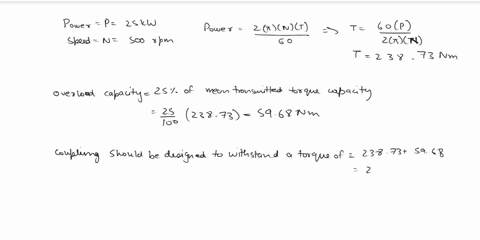 Power = P = 25 kW
Speed = N = 500 rpm
Power = 2(π)(N)(T) / 60 => T = 60(P) / 2(π)(N)
T = 238.73 Nm
overload capacity = 25% of mean transmitted torque capacity
= 25/100 (238.73) = 59.68 Nm
coupling should be designed to withstand a torque of = 238.73 + 59.68
= 2